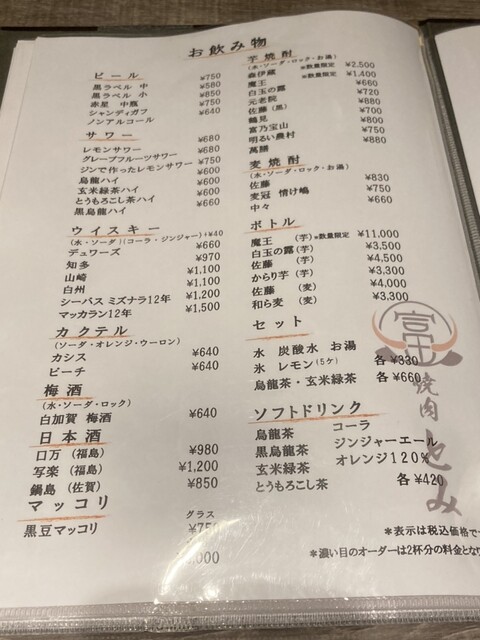 お飲み物
ビール
黒ラベル 中 ¥750
黒ラベル 小 ¥580
赤星 中瓶 ¥850
シャンディガフ ¥750
ノンアルコール ¥640
サワー
レモンサワー ¥680
グレープフルーツサワー ¥680
ジンで作ったレモンサワー ¥750
烏龍ハイ ¥600
玄米緑茶ハイ ¥600
とうもろこし茶ハイ ¥600
黒烏龍ハイ ¥660
ウイスキー
(水・ソーダ)(コーラ・ジンジャー)+¥40
デュワーズ ¥660
知多 ¥970
山崎 ¥1,100
白州 ¥1,100
シーバス ミズナラ12年 ¥1,200
マッカラン12年 ¥1,500
カクテル
(ソーダ・オレンジ・ウーロン)
カシス ¥640
ピーチ ¥640
梅酒
(水・ソーダ・ロック)
白加賀 梅酒 ¥640
日本酒
口万 (福島) ¥980
写楽 (福島) ¥1,200
鍋島 (佐賀) ¥850
マッコリ
グラス
黒豆マッコリ ¥750
,000
芋焼酎
(水・ソーダ・ロック・お湯)
森伊蔵 *数量限定 ¥2,500
魔王 *数量限定 ¥1,400
白玉の露 ¥660
元老院 ¥720
佐藤 (黒) ¥880
鶴見 ¥700
富乃宝山 ¥800
明るい農村 ¥750
萬膳 ¥880
麦焼酎
(水・ソーダ・ロック・お湯)
佐藤 ¥830
麦冠 情け嶋 ¥750
中々 ¥660
ボトル
魔王 (芋) *数量限定 ¥11,000
白玉の露 (芋) ¥3,500
佐藤 (芋) ¥4,500
からり芋 (芋) ¥3,300
佐藤 (麦) ¥4,000
和ら麦 (麦) ¥3,300
セット
水 炭酸水 お湯
氷 レモン(5ケ) 各 ¥330
烏龍茶・玄米緑茶 各 ¥660
ソフトドリンク
烏龍茶 コーラ
黒烏龍茶 ジンジャーエール
玄米緑茶 オレンジ120%
とうもろこし茶 各 ¥420
富
焼肉 とみ
*表示は税込価格で
*濃い目のオーダーは2杯分の料金とな